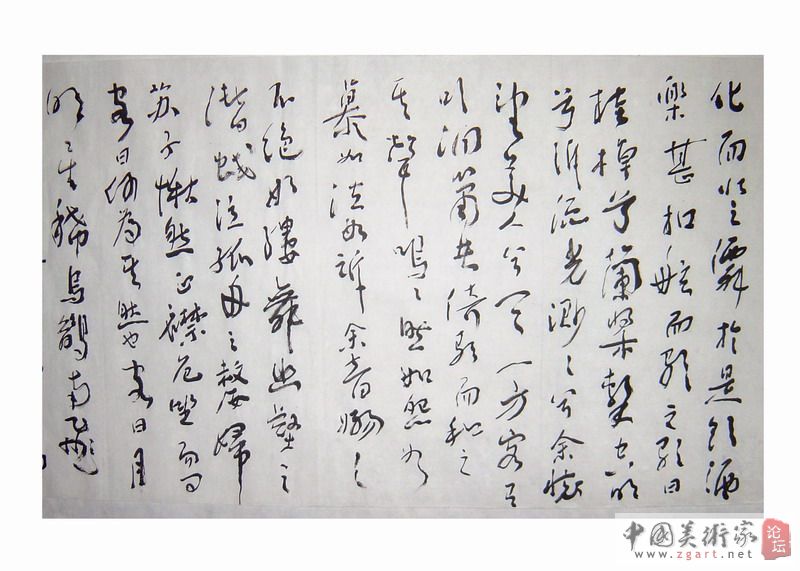 化而登仙於是飲酒
樂甚扣舷而歌之歌曰
桂棹兮蘭槳擊空明
兮泝流光渺渺兮余懷
望美人兮天一方客有
吹洞簫者倚歌而和之
其聲嗚嗚然如怨如
慕如泣如訴余音嫋嫋
不絕如縷舞幽壑之
潛蛟泣孤舟之嫠婦
蘇子愀然正襟危坐而問
客曰何為其然也客曰月
明星稀烏鵲南飛
中國美術家
论坛
www.zgart.net